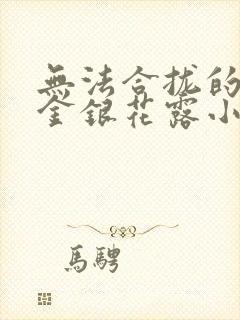 無法合拢的
金銀花露小
馬騁